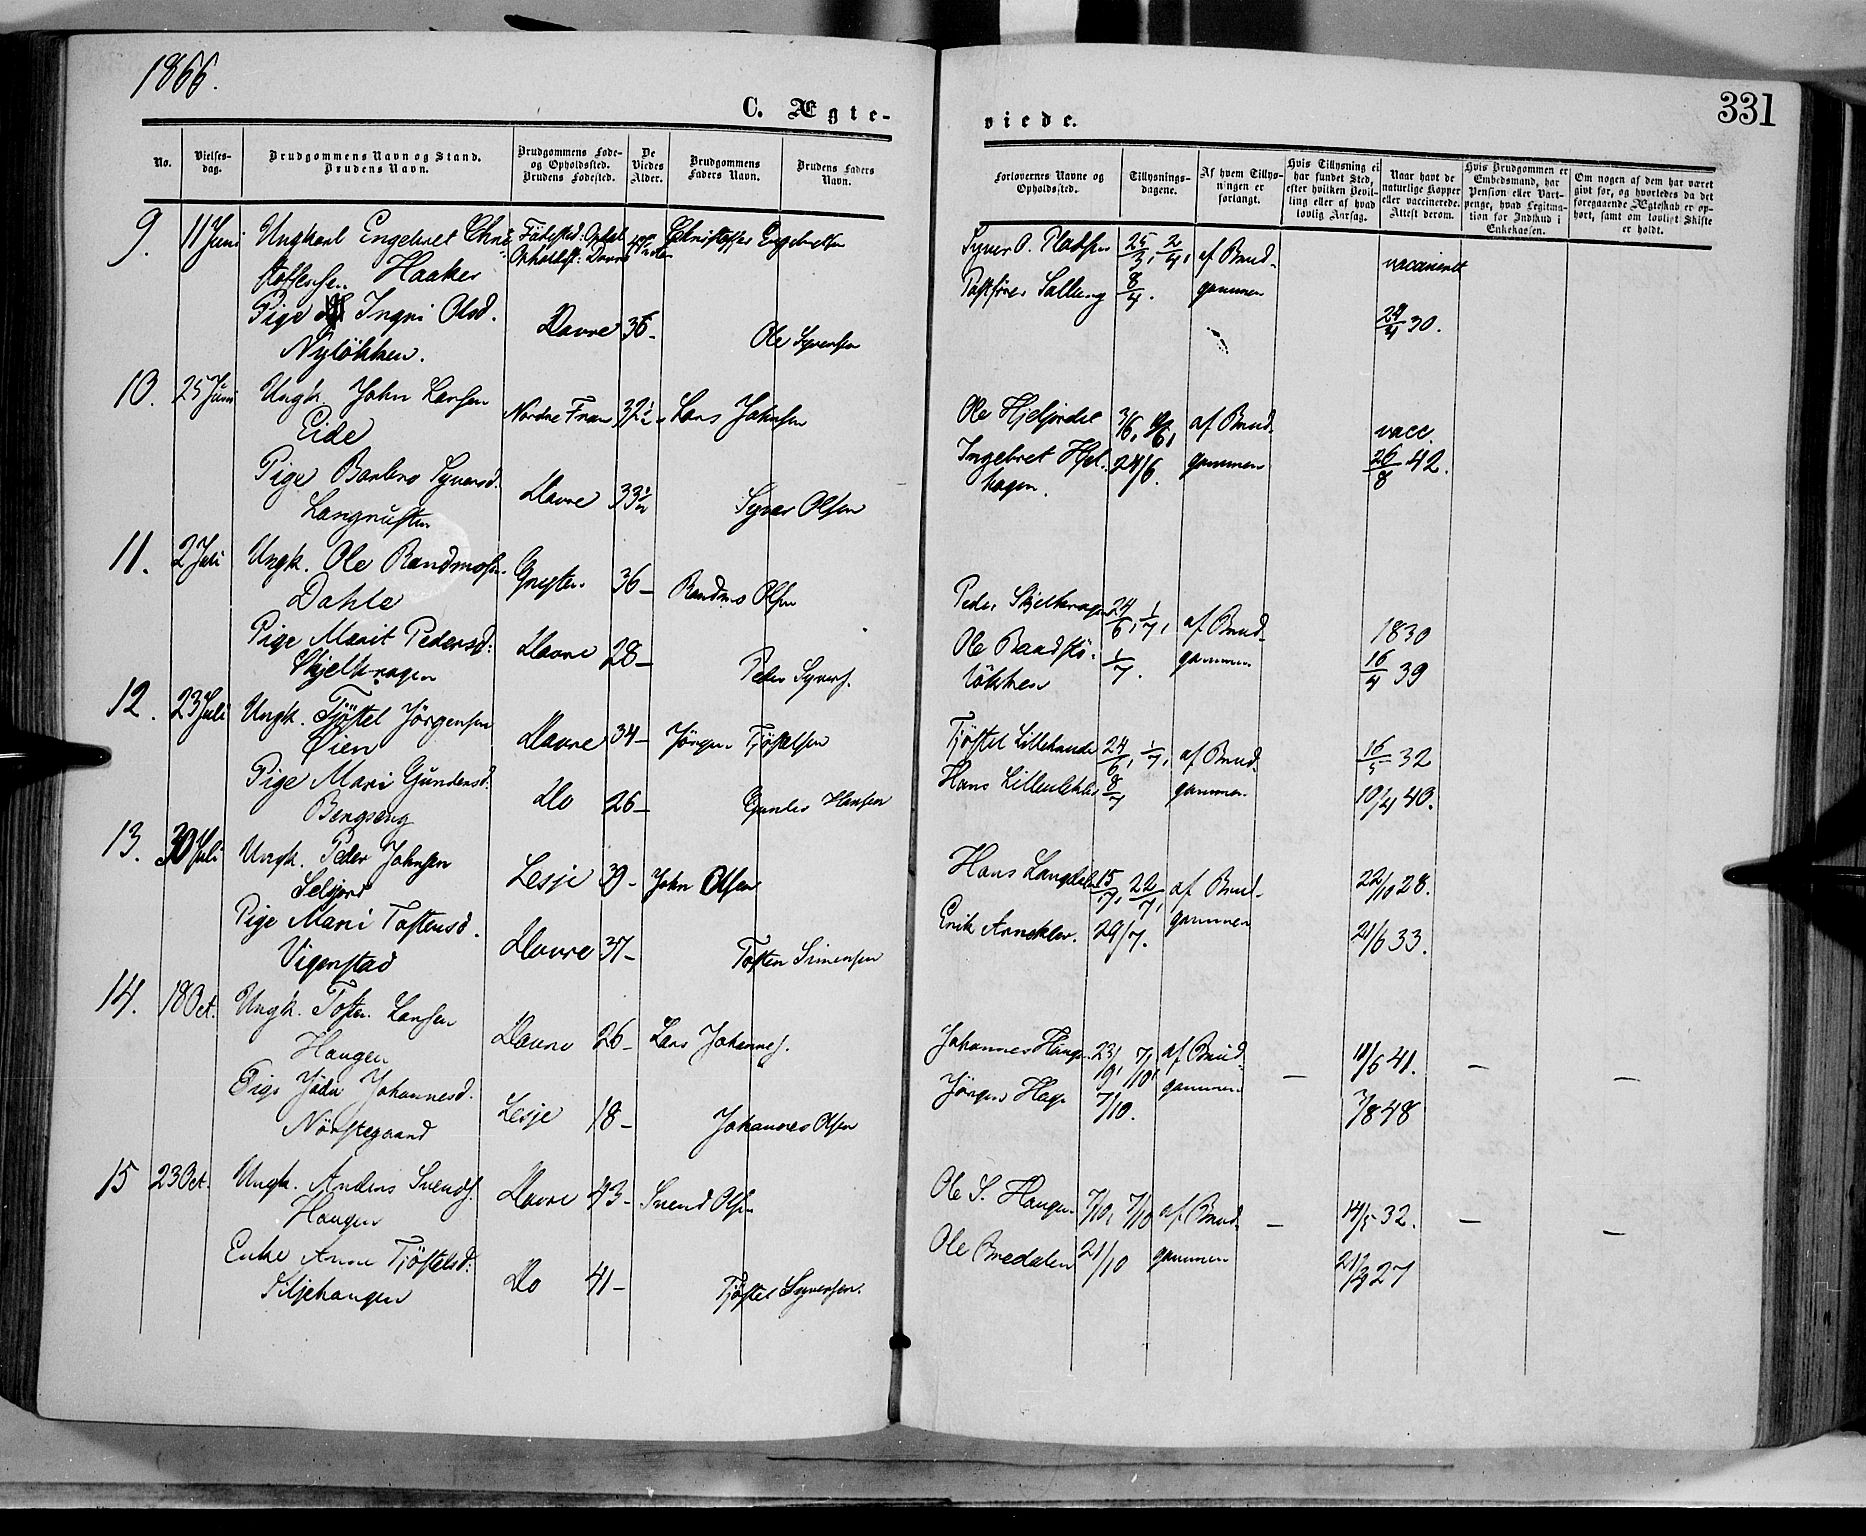 1866.
C. Ægte-
viede.
331
No.
Vielses-
dag.
Brudgommens Navn og Stand.
Brudens Navn.
Brudgommens Føde-
og Opholdssted.
Brudens Fødested.
De
Viedes
Alder.
Brudgommens
Faders Navn.
Brudens Faders
Navn.
Forlovernes Navne og
Opholdssted.
Tillysnings-
dagene.
Af hvem Tillys-
ningen er
forlangt.
Hvis Tillysning ei
har fundet Sted,
efter hvilken Bevil-
ling eller af hvad
lovlig Aarsag.
Naar havt de
naturlige Kopper
eller vaccinerede.
Attest derom.
Hvis Brudgommen er
Embedsmand, har
Pension eller Vart-
penge, hvad Legitima-
tion for Indskud i
Enkekassen.
Om nogen af dem har været
gift før, og hvorledes da det
foregaaende Ægteskab er op-
hørt, samt om lovligt Skifte
er holdt.
9. 11 Juni Ungkarl Engebret Chri- Fødested: Opdal Christoffer Engebretsen Syver O. Pladsen 25/3, 2/4, af Brud-
stoffersen Haaker Opholdst: Dovre 8/4. gommen vaccineret
Pige Ingri Olsd. Dovre 36- Ole Syversen 24/4 30.
Nyløkken.
10. 25 Juni Ungk. John Larsen Nordre Fron 32½ Lars Johnsen Ole Hjeljordet 3/6, af Brud- vacc.
Eide Ingebret Hjel- 24/6. gommen 26/8 42.
Pige Barbro Syversd. Dovre 33½ Syver Olsen hagen.
Langrusten
11. 2 Juli Ungk. Ole Randmosn. 36- Olsen Peder Skjelkragen 24/6, 1/7, af Brud- 1830
Dahle
Pige Marit Pedersd. Dovre 28- Peder Syvers. Ole gommen 16/4 39
Skjelkragen løkken 1/7.
12. 23 Juli Ungk. Tjøstel Jørgensen Dovre 34- Jørgen Tjøstelsen Tjøstel 24/6, 1/7, af Brud- 16/5 32
Øien
Pige Mari Do 26- Hansen Hans 8/7 gommen 10/4 40.
Bergseng
13. 30 Juli Ungk. Peder Johnsen Lesje 39- John Olsen Hans 15/7, 22/7, af Brud- 22/10 28.
Selsjord
Pige Mari Tostensd. Dovre 37- Tosten Simensen Erik 29/7. gommen 21/6 33.
Vigerstad
14. 18 Oct. Ungk. Tosten Larsen Dovre 26- Lars Johannes. Johannes Hauge 23/9, 7/10, af Brud- — 18/6 41. — —
Haugen
Pige Johannesd. Lesje 18- Johannes Olsen Jørgen Hage 7/10. gommen 7/8 48
Nørstegaard
15 23 Oct. Ungk. Anders Svends. Dovre 43- Svend Olsen Ole S. Haugen 7/10, 7/10 af Brud- — 14/5 32. — —
Haugen
Enke Anne Tjøstelsd. Do 41- Tjøstel Syversen. Ole Bredalen 21/10 gommen 27
Siljehaugen